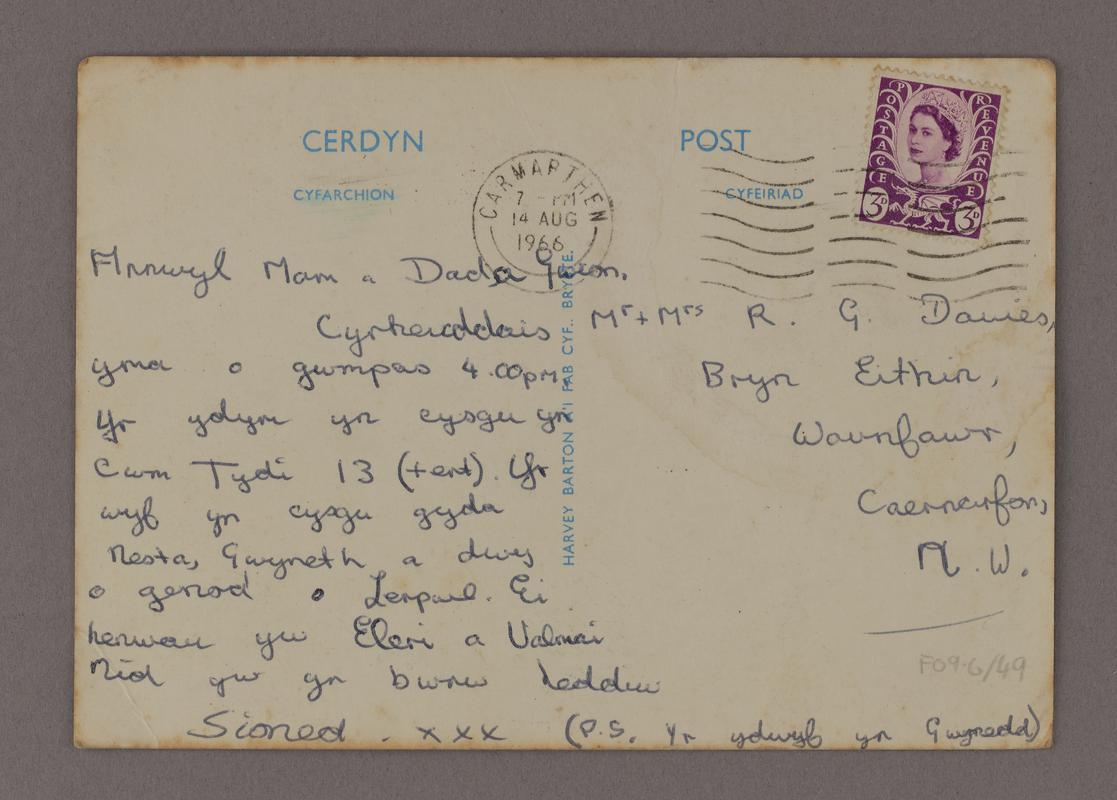 CERDYN POST
CYFARCHION CYFEIRIAD
CARMARTHEN
7 - PM
14 AUG
1966
POSTAGE REVENUE
3D 3D
Annwyl Mam a Dada Gwion,
Cyrhaeddais
yma o gwmpas 4.00pm,
Yr ydym yn cysgu yn
Cwm Tydi 13 (tent). Yr
wyf yn cysgu gyda
Nesta, Gwyneth a dwy
o genod o Lerpwl. Ei
henwau yw Eleri a Valmai
Nid yw yn bwrw heddiw
Sioned. x x x (P.S. Yr ydwyf yn Gwynedd)
HARVEY BARTON A'I FAB CYF., BRYSTE.
Mr + Mrs R. G. Davies,
Bryn Eithin,
Waunfawr,
Caernarfon,
N.W.
F09.6/49